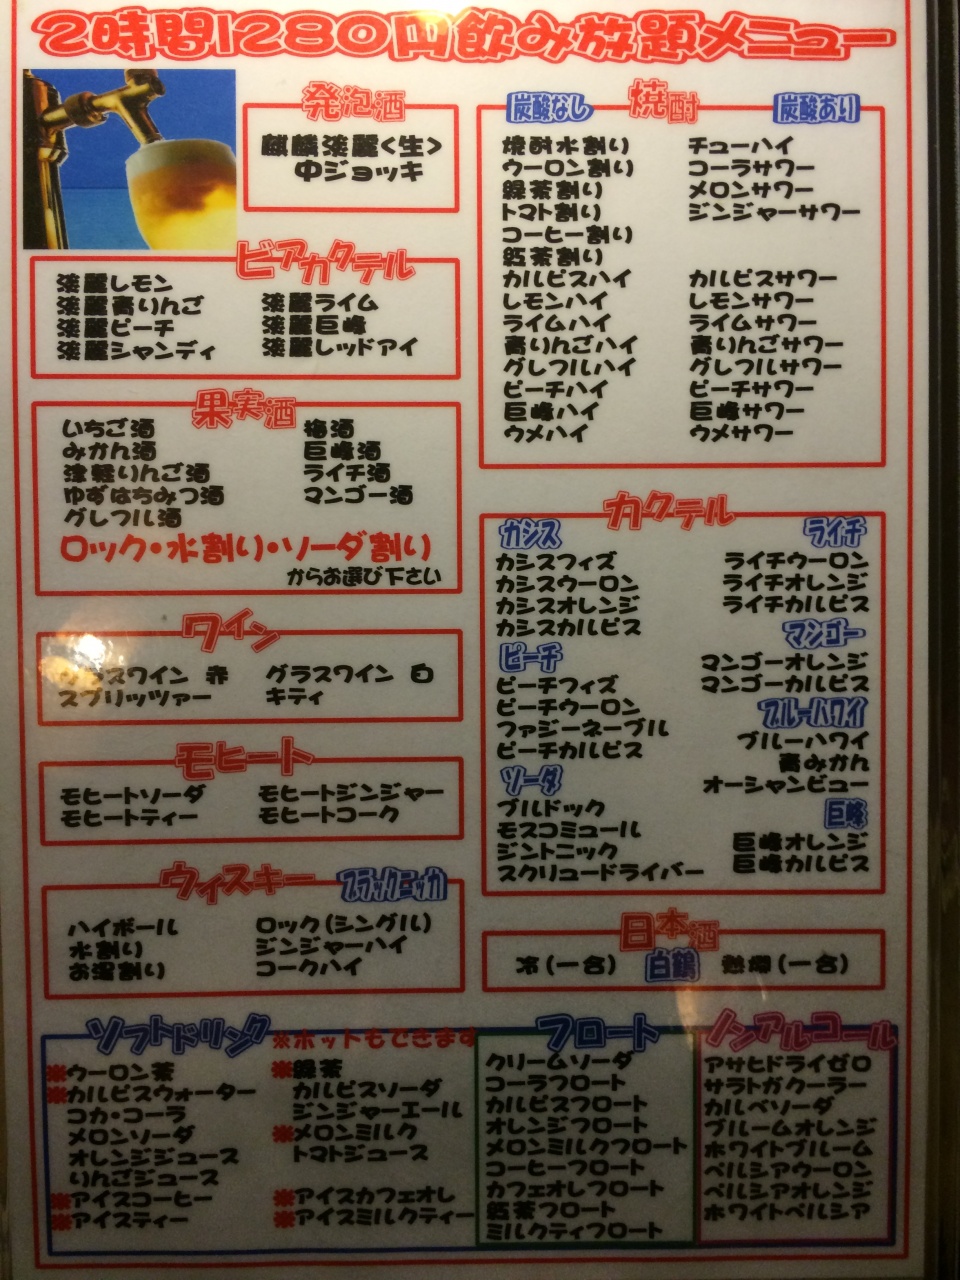 2時間1280円飲み放題メニュー
発泡酒
麒麟淡麗<生>
中ジョッキ
ビアカクテル
淡麗レモン
淡麗青りんご
淡麗ピーチ
淡麗シャンディ
淡麗ライム
淡麗巨峰
淡麗レッドアイ
果実酒
いちご酒
みかん酒
津軽りんご酒
ゆずはちみつ酒
グレフル酒
梅酒
巨峰酒
ライチ酒
マンゴー酒
ロック・水割り・ソーダ割り
からお選び下さい
ワイン
グラスワイン 赤
グラスワイン 白
スプリッツァー
キティ
モヒート
モヒートソーダ
モヒートジンジャー
モヒートティー
モヒートコーク
ウィスキー
ブラックニッカ
ハイボール
水割り
お湯割り
ロック(シングル)
ジンジャーハイ
コークハイ
焼酎
炭酸なし
焼酎水割り
ウーロン割り
緑茶割り
トマト割り
コーヒー割り
紅茶割り
カルピスハイ
レモンハイ
ライムハイ
青りんごハイ
グレフルハイ
ピーチハイ
巨峰ハイ
ウメハイ
炭酸あり
チューハイ
コーラサワー
メロンサワー
ジンジャーサワー
カルピスサワー
レモンサワー
ライムサワー
青りんごサワー
グレフルサワー
ピーチサワー
巨峰サワー
ウメサワー
カクテル
カシス
カシスフィズ
カシスウーロン
カシスオレンジ
カシスカルピス
ピーチ
ピーチフィズ
ピーチウーロン
ファジーネーブル
ピーチカルピス
ソーダ
ブルドック
モスコミュール
ジントニック
スクリュードライバー
ライチ
ライチウーロン
ライチオレンジ
ライチカルピス
マンゴー
マンゴーオレンジ
マンゴーカルピス
ブルーハワイ
ブルーハワイ
青みかん
オーシャンビュー
巨峰
巨峰オレンジ
巨峰カルピス
日本酒
冷(一合) 白鶴 熱燗(一合)
ソフトドリンク ※ホットもできます
※ウーロン茶
※カルピスウォーター
コカ・コーラ
メロンソーダ
オレンジジュース
りんごジュース
※アイスコーヒー
※アイスティー
※緑茶
カルピスソーダ
ジンジャーエール
※メロンミルク
トマトジュース
※アイスカフェオレ
※アイスミルクティー
フロート
クリームソーダ
コーラフロート
カルピスフロート
オレンジフロート
メロンミルクフロート
コーヒーフロート
カフェオレフロート
紅茶フロート
ミルクティフロート
ノンアルコール
アサヒドライゼロ
サラトガクーラー
カルベソーダ
ブルームオレンジ
ホワイトブルーム
ペルシアウーロン
ペルシアオレンジ
ホワイトペルシア